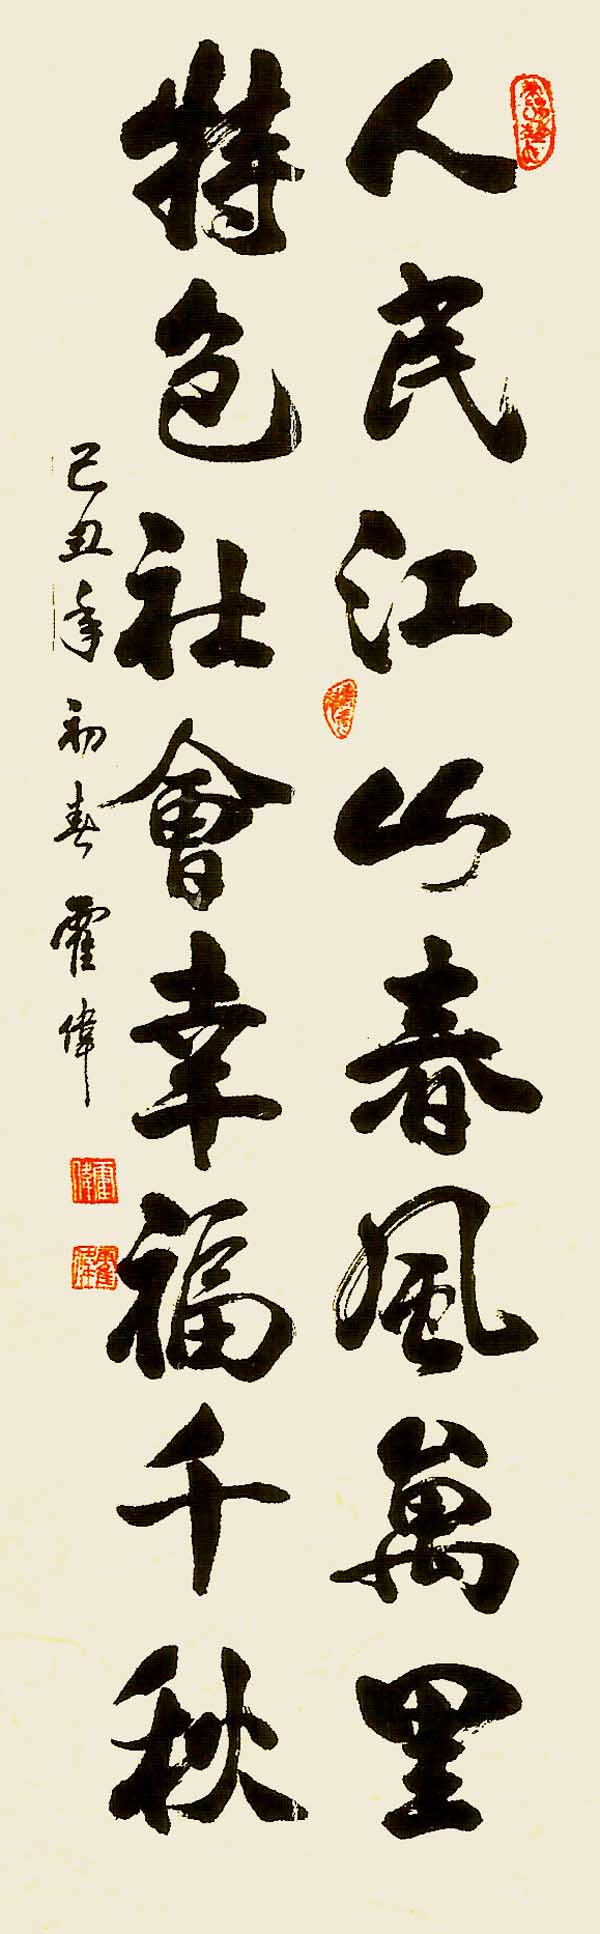 人民江山春風萬里
特色社會幸福千秋
己丑年初春霍偉